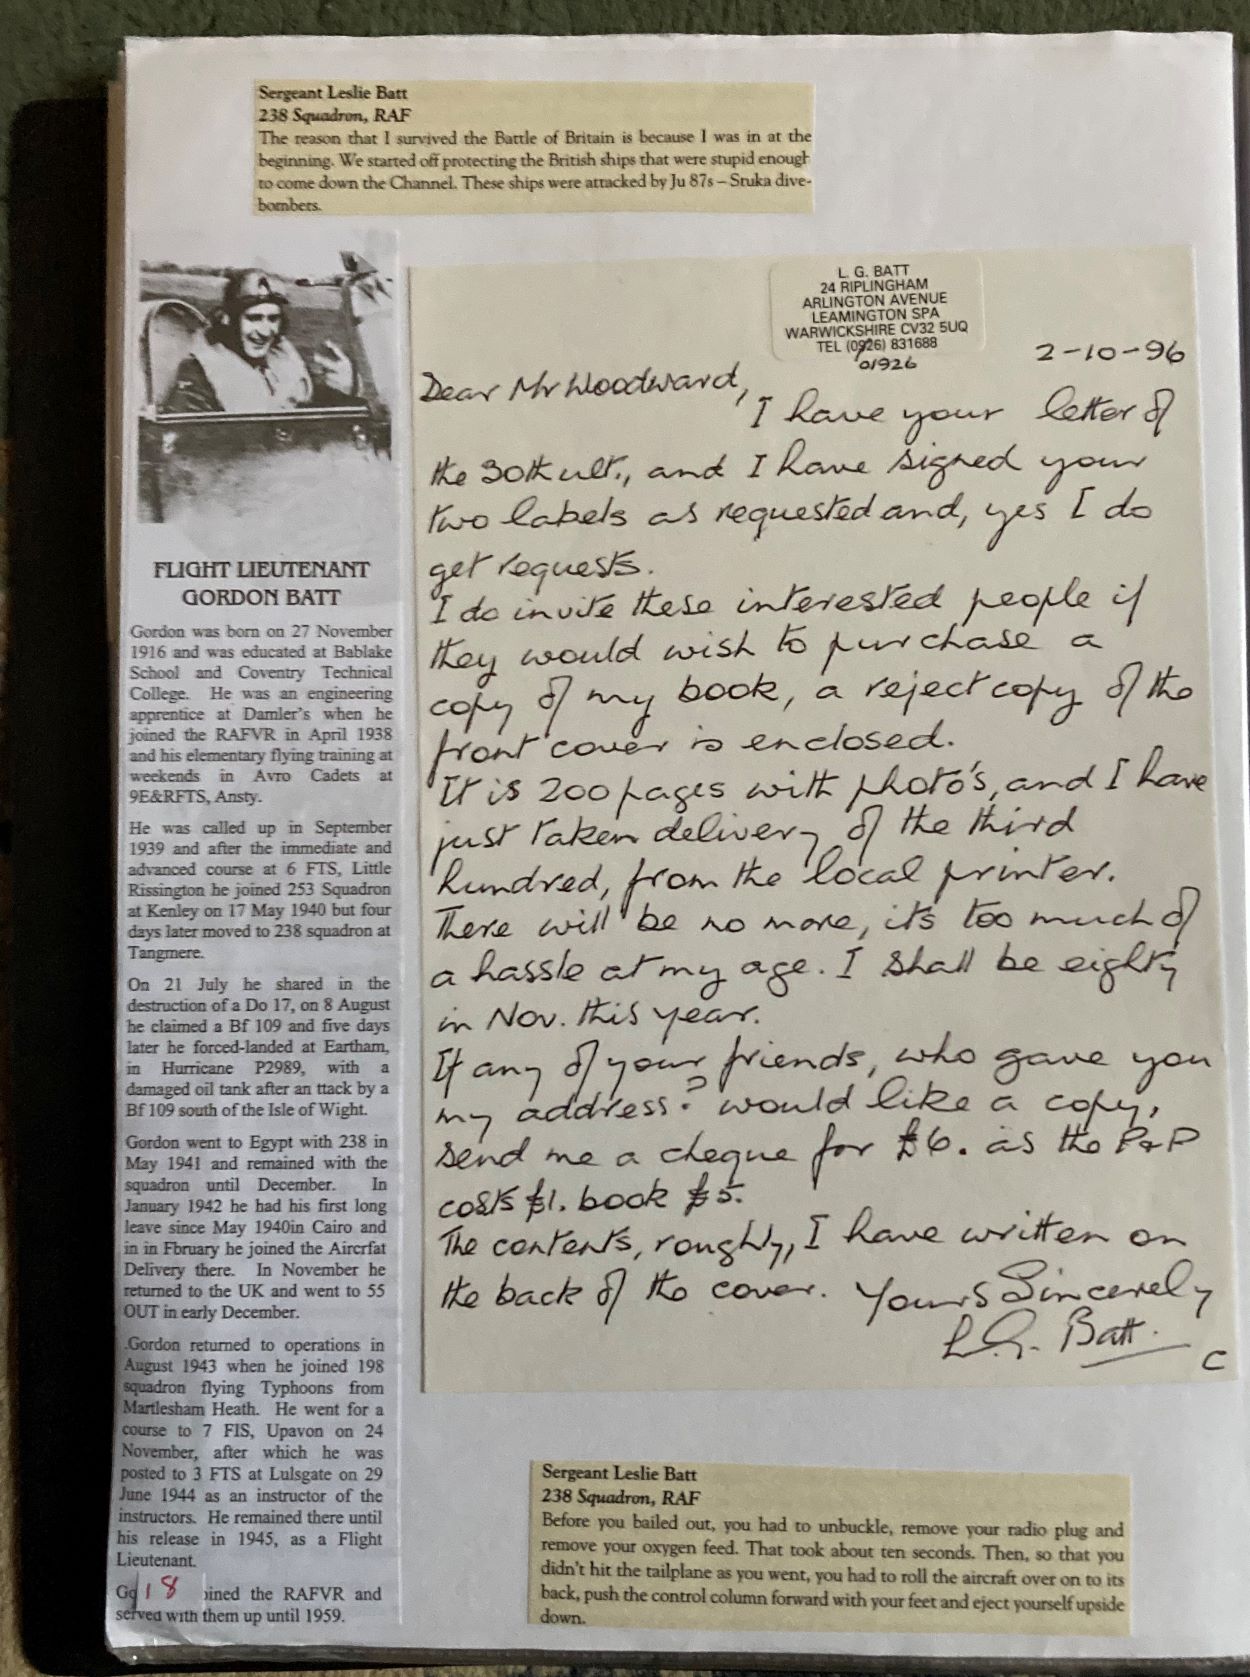 Sergeant Leslie Batt
238 Squadron, RAF
The reason that I survived the Battle of Britain is because I was in at the
beginning. We started off protecting the British ships that were stupid enough
to come down the Channel. These ships were attacked by Ju 87s – Stuka dive-
bombers.
FLIGHT LIEUTENANT
GORDON BATT
Gordon was born on 27 November
1916 and was educated at Bablake
School and Coventry Technical
College. He was an engineering
apprentice at Damler's when he
joined the RAFVR in April 1938
and his elementary flying training at
weekends in Avro Cadets at
9E&RFTS, Ansty.
He was called up in September
1939 and after the immediate and
advanced course at 6 FTS, Little
Rissington he joined 253 Squadron
at Kenley on 17 May 1940 but four
days later moved to 238 squadron at
Tangmere.
On 21 July he shared in the
destruction of a Do 17, on 8 August
he claimed a Bf 109 and five days
later he forced-landed at Eartham,
in Hurricane P2989, with a
damaged oil tank after an ttack by a
Bf 109 south of the Isle of Wight.
Gordon went to Egypt with 238 in
May 1941 and remained with the
squadron until December. In
January 1942 he had his first long
leave since May 1940in Cairo and
in in Fbruary he joined the Aircrfat
Delivery there. In November he
returned to the UK and went to 55
OUT in early December.
.Gordon returned to operations in
August 1943 when he joined 198
squadron flying Typhoons from
Martlesham Heath. He went for a
course to 7 FIS, Upavon on 24
November, after which he was
posted to 3 FTS at Lulsgate on 29
June 1944 as an instructor of the
instructors. He remained there until
his release in 1945, as a Flight
Lieutenant.
Go 18 oined the RAFVR and
served with them up until 1959.
L. G. BATT
24 RIPLINGHAM
ARLINGTON AVENUE
LEAMINGTON SPA
WARWICKSHIRE CV32 5UQ
TEL (0926) 831688
01926
2-10-96
Dear Mr Woodward,
I have your letter of
the 30th ult., and I have signed your
two labels as requested and, yes I do
get requests.
I do invite these interested people if
they would wish to purchase a
copy of my book, a reject copy of the
front cover is enclosed.
It is 200 pages with photo's, and I have
just taken delivery of the third
hundred, from the local printer.
There will be no more, it's too much of
a hassle at my age. I shall be eighty
in Nov. this year.
If any of your friends, who gave you
my address? would like a copy,
send me a cheque for £6. as the P+P
costs £1. book £5.
The contents, roughly, I have written on
the back of the cover. Yours Sincerely
L.G. Batt.
C
Sergeant Leslie Batt
238 Squadron, RAF
Before you bailed out, you had to unbuckle, remove your radio plug and
remove your oxygen feed. That took about ten seconds. Then, so that you
didn't hit the tailplane as you went, you had to roll the aircraft over on to its
back, push the control column forward with your feet and eject yourself upside
down.